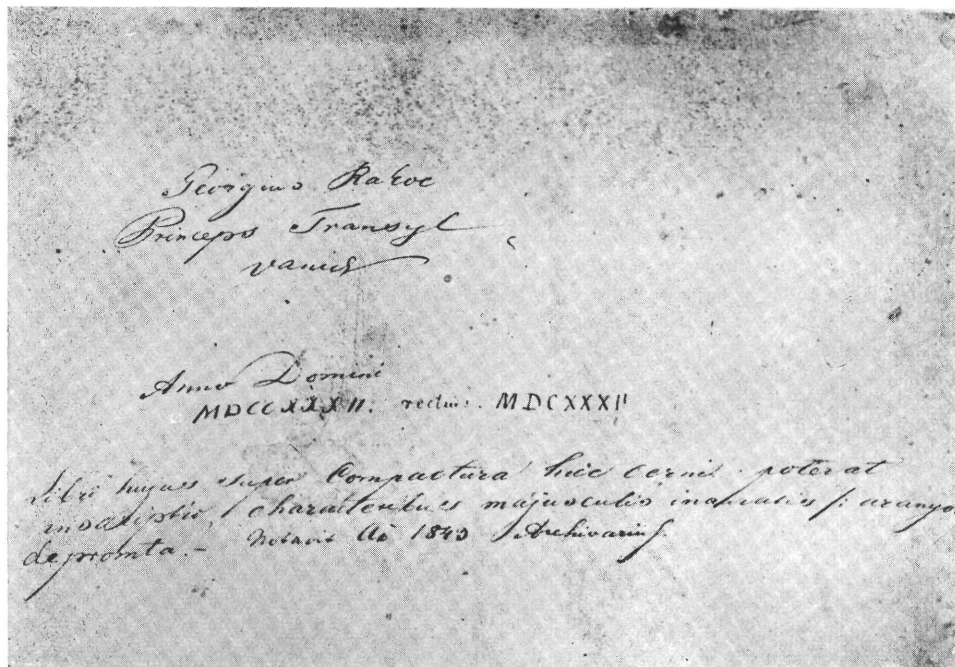 Georgius Rakoc
Princeps Transyl
vaniae
Anno Domini
MDCCXXXII. rectius. MDCXXXII
Libri hujus super Compactura heic cerni poterat
inscriptio, characteribus majusculis inauratis /: aranyo
depromta. – Notavit Ao 1843 Archivarius